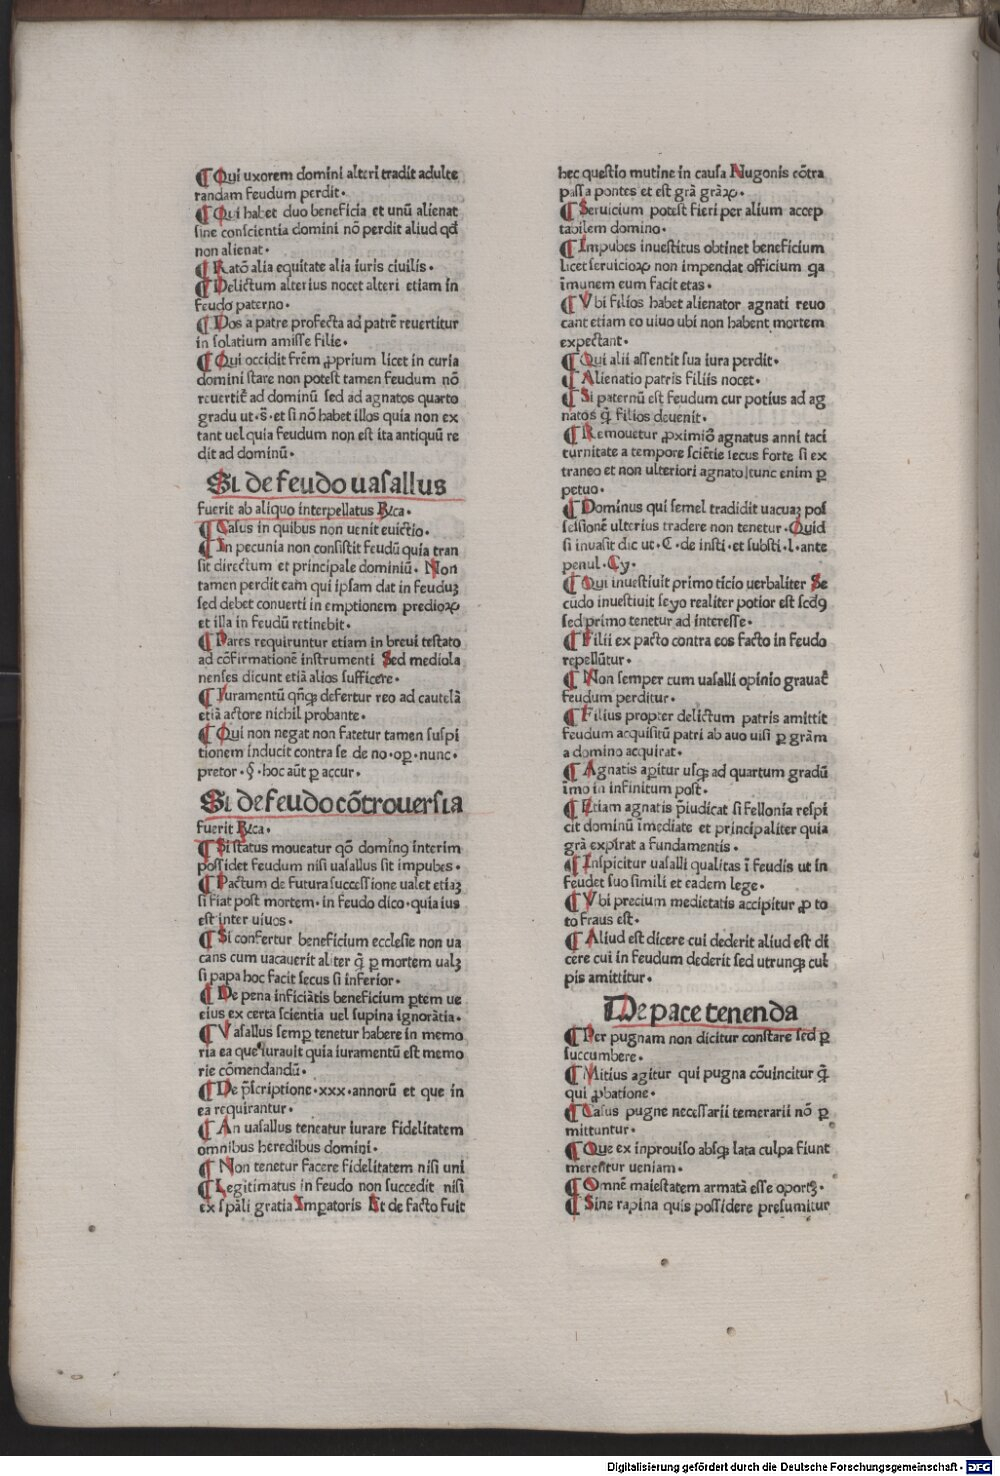 ¶ Qui uxorem domini alteri tradit adulte
randam feudum perdit.
¶ Qui habet duo beneficia et unū alienat
sine conscientia domini nō perdit aliud qđ
non alienat.
¶ Ratō alia equitate alia iuris ciuilis.
¶ Delictum alterius nocet alteri etiam in
feudo paterno.
¶ Dos a patre profecta ad patrē reuertitur
in solatium amisse filie.
¶ Qui occidit frēm ꝓprium licet in curia
domini stare non potest tamen feudum nō
reuertit᷑ ad dominū sed ad agnatos quarto
gradu ut. s̄. et si nō habet illos quia non ex
tant uel quia feudum non est ita antiquū re
dit ad dominū.
Si de feudo uasallus
fuerit ab aliquo interpellatus Rica.
¶ Casus in quibus non uenit euictio.
¶ In pecunia non consistit feudū quia tran
sit directum et principale dominiū. Non
tamen perdit eam qui ipsam dat in feuduꝫ
sed debet conuerti in emptionem predioꝝ
et illa in feudū retinebit.
¶ Pares requiruntur etiam in breui testato
ad cōfirmationē instrumenti Sed mediola
nenses dicunt etiā alios sufficere.
¶ Iuramentū qn̄qꝫ defertur reo ad cautelā
etiā actore nichil probante.
¶ Qui non negat non fatetur tamen suspi
tionem inducit contra se de no. oꝑ. nunc.
pretor. §. hoc aūt ꝑ accur.
Si de feudo cōtrouersia
fuerit Rica.
¶ Si status moueatur qō dominꝰ interim
possidet feudum nisi uasallus sit impubes.
¶ Pactum de futura successione ualet etiaꝫ
si fiat post mortem. in feudo dico. quia ius
est inter uiuos.
¶ Si confertur beneficium ecclesie non ua
cans cum uacauerit aliter q̄ ꝑ mortem ualꝫ
si papa hoc facit secus si inferior.
¶ De pena inficiātis beneficium ꝑtem ue
eius ex certa scientia uel supina ignorātia.
¶ Vasallus semꝑ tenetur habere in memo
ria ea que iurauit quia iuramentū est memo
rie cōmendandū.
¶ De p̄scriptione .xxx. annorū et que in
ea requirantur.
¶ An uasallus teneatur iurare fidelitatem
omnibus heredibus domini.
¶ Non tenetur facere fidelitatem nisi uni
¶ Legitimatus in feudo non succedit nisi
ex spāli gratia Imꝑatoris Et de facto fuit
hec questio mutine in causa Nugonis cōtra
passa pontes et est grā grāꝝ.
¶ Seruicium potest fieri per alium accep
tabilem domino.
¶ Impubes inuestitus obtinet beneficium
licet seruicioꝝ non impendat officium qa
īmunem eum facit etas.
¶ Vbi filios habet alienator agnati reuo
cant etiam eo uiuo ubi non habent mortem
expectant.
¶ Qui alii assentit sua iura perdit.
¶ Alienatio patris filiis nocet.
¶ Si paternū est feudum cur potius ad ag
natos q̄ filios deuenit.
¶ Remouetur ꝓximiō agnatus anni taci
turnitate a tempore sciētie secus forte si ex
traneo et non ulteriori agnato tunc enim ꝑ
petuo.
¶ Dominus qui semel tradidit uacuaꝫ pos
sessionē ulterius tradere non tenetur. Quid
si inuasit dic ut. C. de insti. et substi. l. ante
penul. Cy.
¶ Qui inuestiuit primo ticio uerbaliter Se
cūdo inuestiuit seyo realiter potior est scdꝰ
sed primo tenetur ad interesse.
¶ Filii ex pacto contra eos facto in feudo
repellūtur.
¶ Non semper cum uasalli opinio grauat᷑
feudum perditur.
¶ Filius propter delictum patris amittit
feudum acquisitū patri ab auo uisi ꝑ grām
a domino acquirat.
¶ Agnatis aꝑitur usqꝫ ad quartum gradū
īmo in infinitum post.
¶ Etiam agnatis p̄iudicat si fellonia respi
cit dominū īmediate et principaliter quia
grā expirat a fundamentis.
¶ Inspicitur uasalli qualitas ī feudis ut in
feudet suo simili et eadem lege.
¶ Vbi precium medietatis accipitur ꝓ to
to fraus est.
¶ Aliud est dicere cui dederit aliud est di
cere cui in feudum dederit sed utrunqꝫ cul
pis amittitur.
De pace tenenda
¶ Per pugnam non dicitur constare sed ꝑ
succumbere.
¶ Mitius agitur qui pugna cōuincitur q̄
qui ꝓbatione.
¶ Casus pugne necessarii temerarii nō ꝑ
mittuntur.
¶ Que ex inprouiso absqꝫ lata culpa fiunt
merentur ueniam.
¶ Omnē maiestatem armatā esse oportꝫ.
¶ Sine rapina quis possidere presumitur
Digitalisierung gefördert durch die Deutsche Forschungsgemeinschaft - DFG